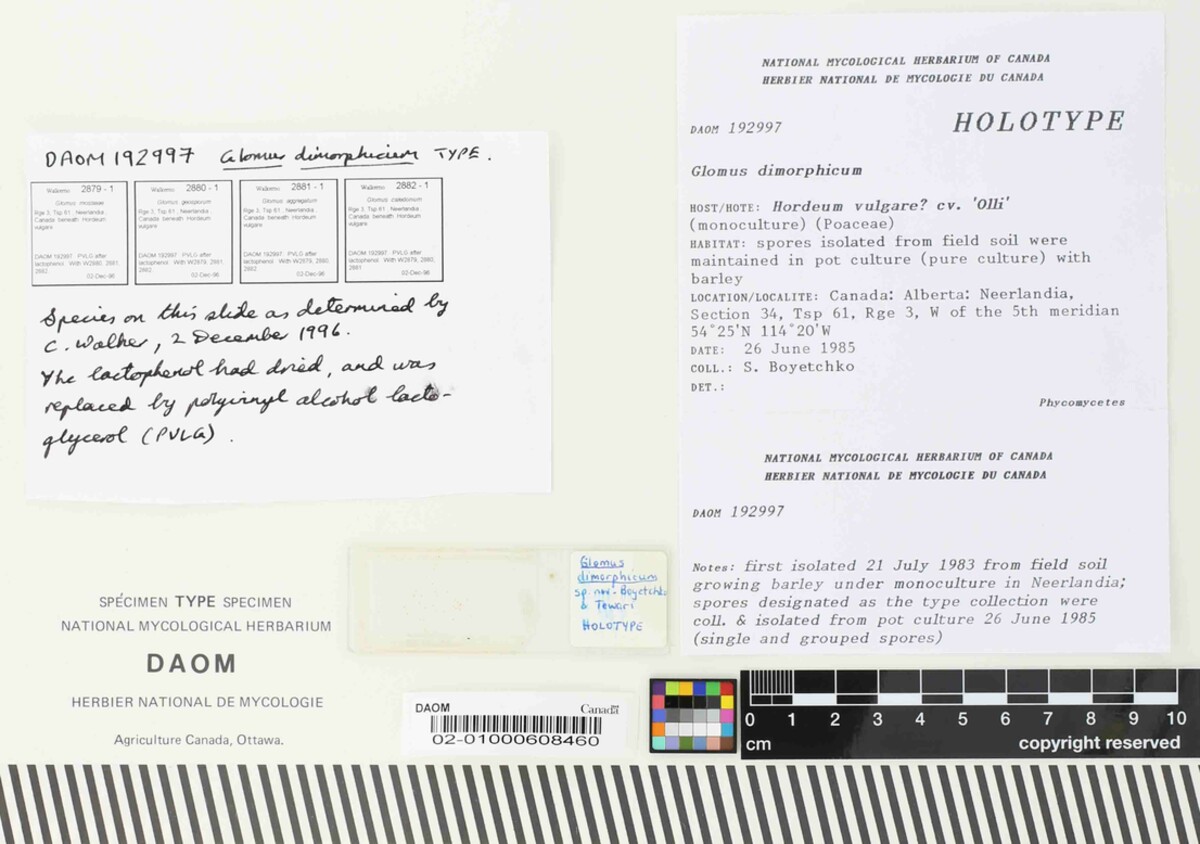 DAOM 192997 Glomus dimorphicum TYPE.
Walkerno 2879 - 1
Glomus mosseae
Rge 3, Tsp 61 , Neerlandia ,
Canada beneath Hordeum
vulgare
DAOM 192997 PVLG after
lactophenol . With W2880, 2881,
2882.
02-Dec-96
Walkerno 2880 - 1
Glomus geosporum
Rge 3, Tsp 61 , Neerlandia ,
Canada beneath Hordeum
vulgare
DAOM 192997 PVLG after
lactophenol With W2879, 2881,
2882.
02-Dec-96
Walkerno 2881 - 1
Glomus aggregatum
Rge 3, Tsp 61 , Neerlandia ,
Canada beneath Hordeum
vulgare
DAOM 192997 PVLG after
lactophenol With W2879, 2880,
2882
02-Dec-96
Walkerno 2882 - 1
Glomus caledonium
Rge 3, Tsp 61 , Neerlandia ,
Canada beneath Hordeum
vulgare
DAOM 192997 PVLG after
lactophenol With W2879, 2880,
2881
02-Dec-96
Species on this slide as determined by
C. Walker, 2 December 1996.
The lactophenol had dried, and was
replaced by polyvinyl alcohol lacto-
glycerol (PVLG).
NATIONAL MYCOLOGICAL HERBARIUM OF CANADA
HERBIER NATIONAL DE MYCOLOGIE DU CANADA
DAOM 192997 HOLOTYPE
Glomus dimorphicum
HOST/HOTE: Hordeum vulgare? cv. 'Olli'
(monoculture) (Poaceae)
HABITAT: spores isolated from field soil were
maintained in pot culture (pure culture) with
barley
LOCATION/LOCALITE: Canada: Alberta: Neerlandia,
Section 34, Tsp 61, Rge 3, W of the 5th meridian
54°25'N 114°20'W
DATE: 26 June 1985
COLL.: S. Boyetchko
DET.:
Phycomycetes
NATIONAL MYCOLOGICAL HERBARIUM OF CANADA
HERBIER NATIONAL DE MYCOLOGIE DU CANADA
DAOM 192997
Notes: first isolated 21 July 1983 from field soil
growing barley under monoculture in Neerlandia;
spores designated as the type collection were
coll. & isolated from pot culture 26 June 1985
(single and grouped spores)
Glomus
dimorphicum
sp. nov. Boyetchko
& Tewari
HOLOTYPE
SPÉCIMEN TYPE SPECIMEN
NATIONAL MYCOLOGICAL HERBARIUM
DAOM
HERBIER NATIONAL DE MYCOLOGIE
Agriculture Canada, Ottawa.
DAOM Canada
02-01000608460
0 1 2 3 4 5 6 7 8 9 10
cm copyright reserved